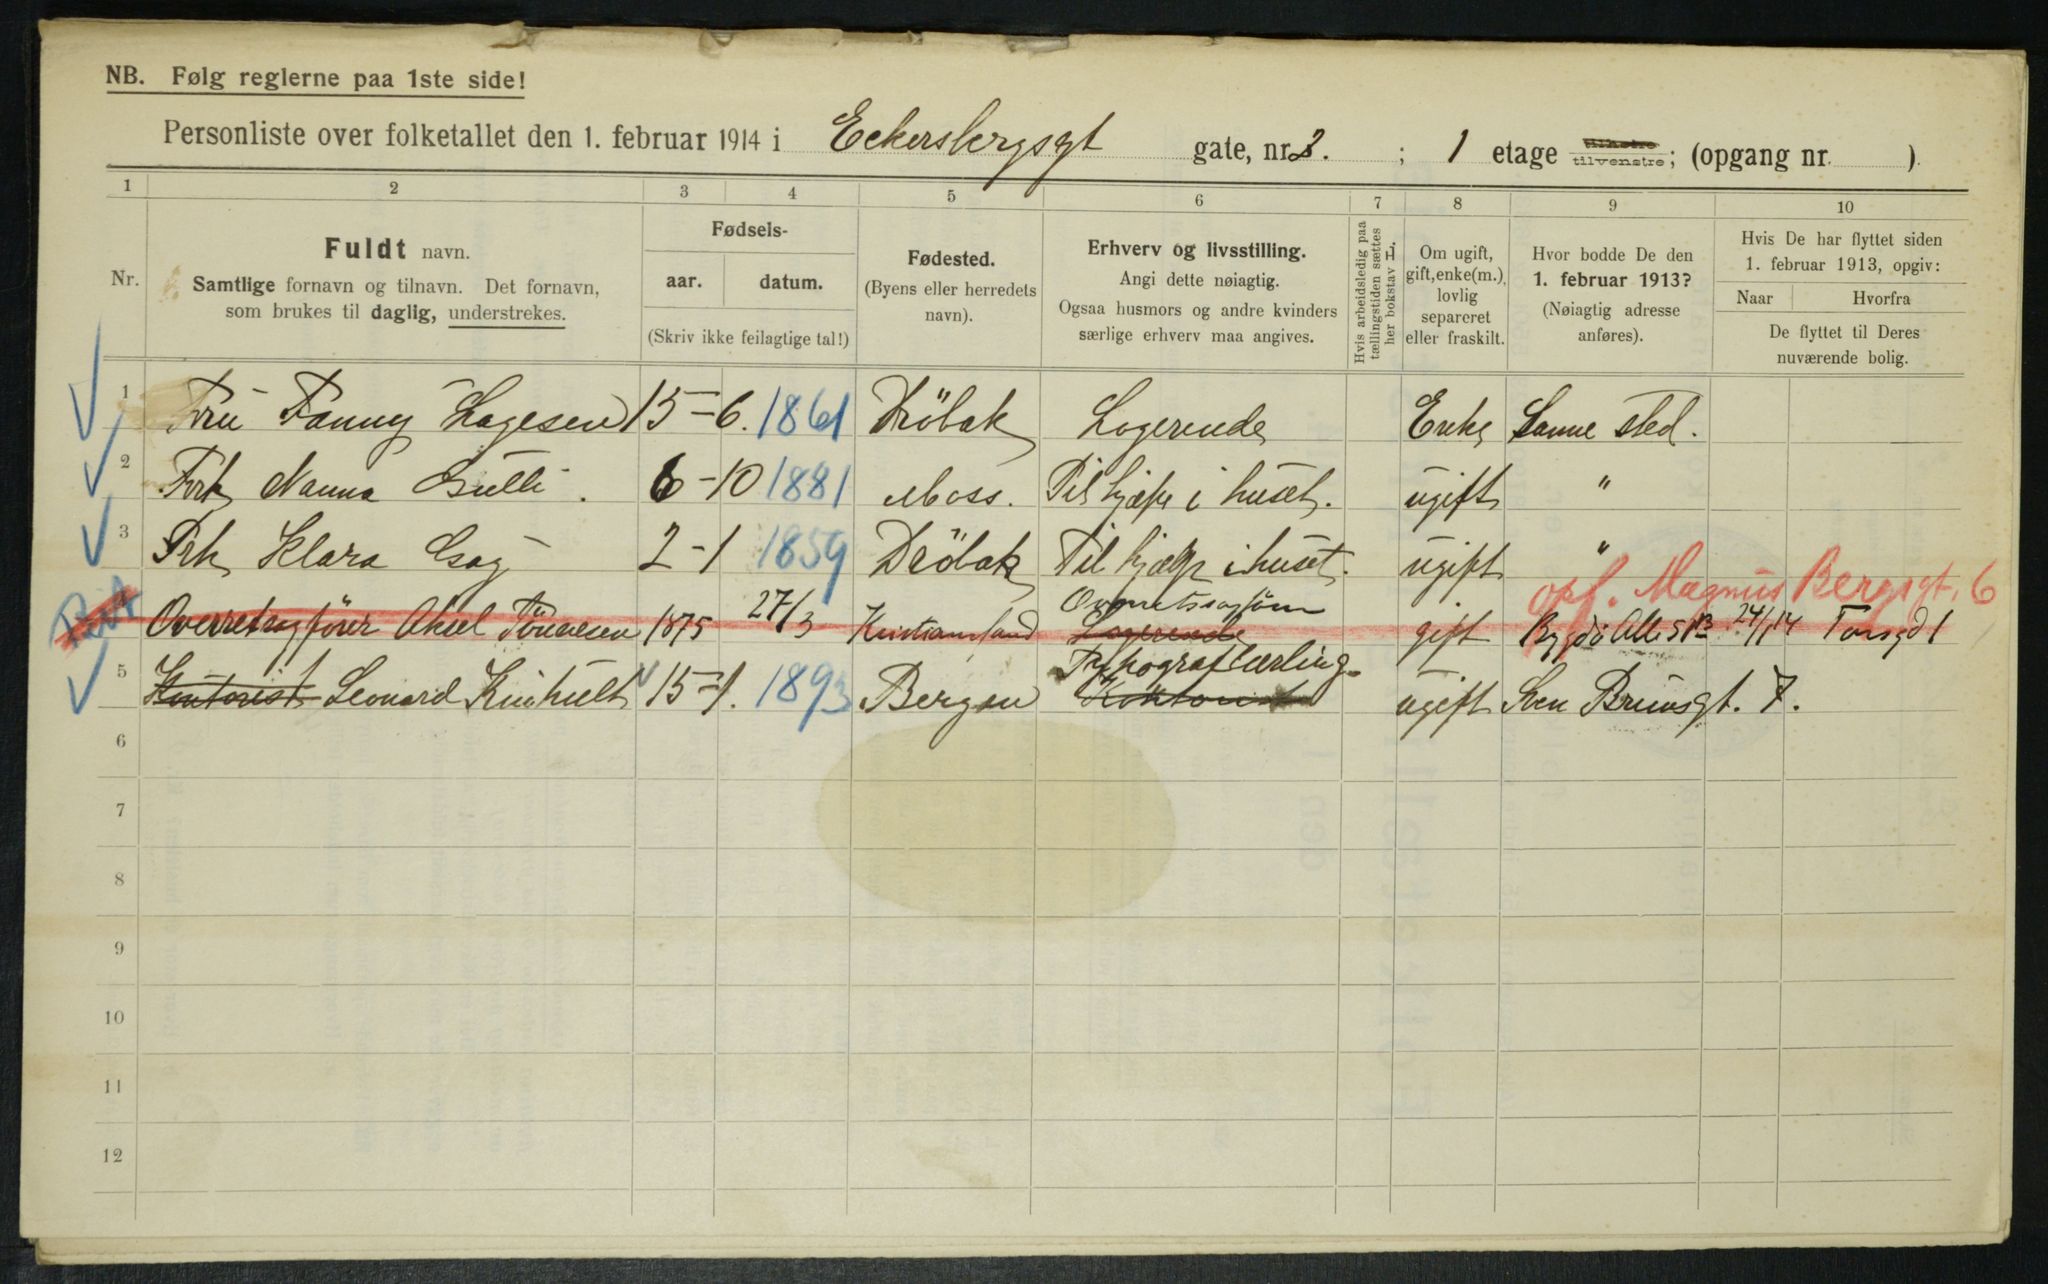 NB. Følg reglerne paa 1ste side!
Personliste over folketallet den 1. februar 1914 i Eckersbergsgt gate, nr. 3. ; 1 etage tilhøire tilvenstre; (opgang nr. ).
1 2 3 4 5 6 7 8 9 10
Nr.
Fuldt navn.
Samtlige fornavn og tilnavn. Det fornavn,
som brukes til daglig, understrekes.
Fødsels-
aar. datum.
(Skriv ikke feilagtige tal!)
Fødested.
(Byens eller herredets
navn).
Erhverv og livsstilling.
Angi dette nøiagtig.
Ogsaa husmors og andre kvinders
særlige erhverv maa angives.
Hvis arbeidsledig paa
tællingstiden sættes
her bokstav L.
Om ugift,
gift, enke(m.),
lovlig
separeret
eller fraskilt.
Hvor bodde De den
1. februar 1913?
(Nøiagtig adresse
anføres).
Hvis De har flyttet siden
1. februar 1913, opgiv:
Naar Hvorfra
De flyttet til Deres
nuværende bolig.
1 Fru Fanny 15-6. 1861 Dröbak Logerende Enke Samme sted.
2 Frk Nanna 6-10 1881 Moss. Til hjælp i huset. ugift "
3 Frk Klara 2-1 1859 Dröbak Til hjælp i huset. ugift "
opf. Magnus Bergsgt. 6
4 Overretssagfører Aksel 1875 27/3 Kristiansand Logerende gift Bygdö Alle 24/1 14
5 Kontorist Leonard 15-1. 1893 Bergen Typograflærling Kontorist ugift Sven Brunsgt. 7.
6
7
8
9
10
11
12